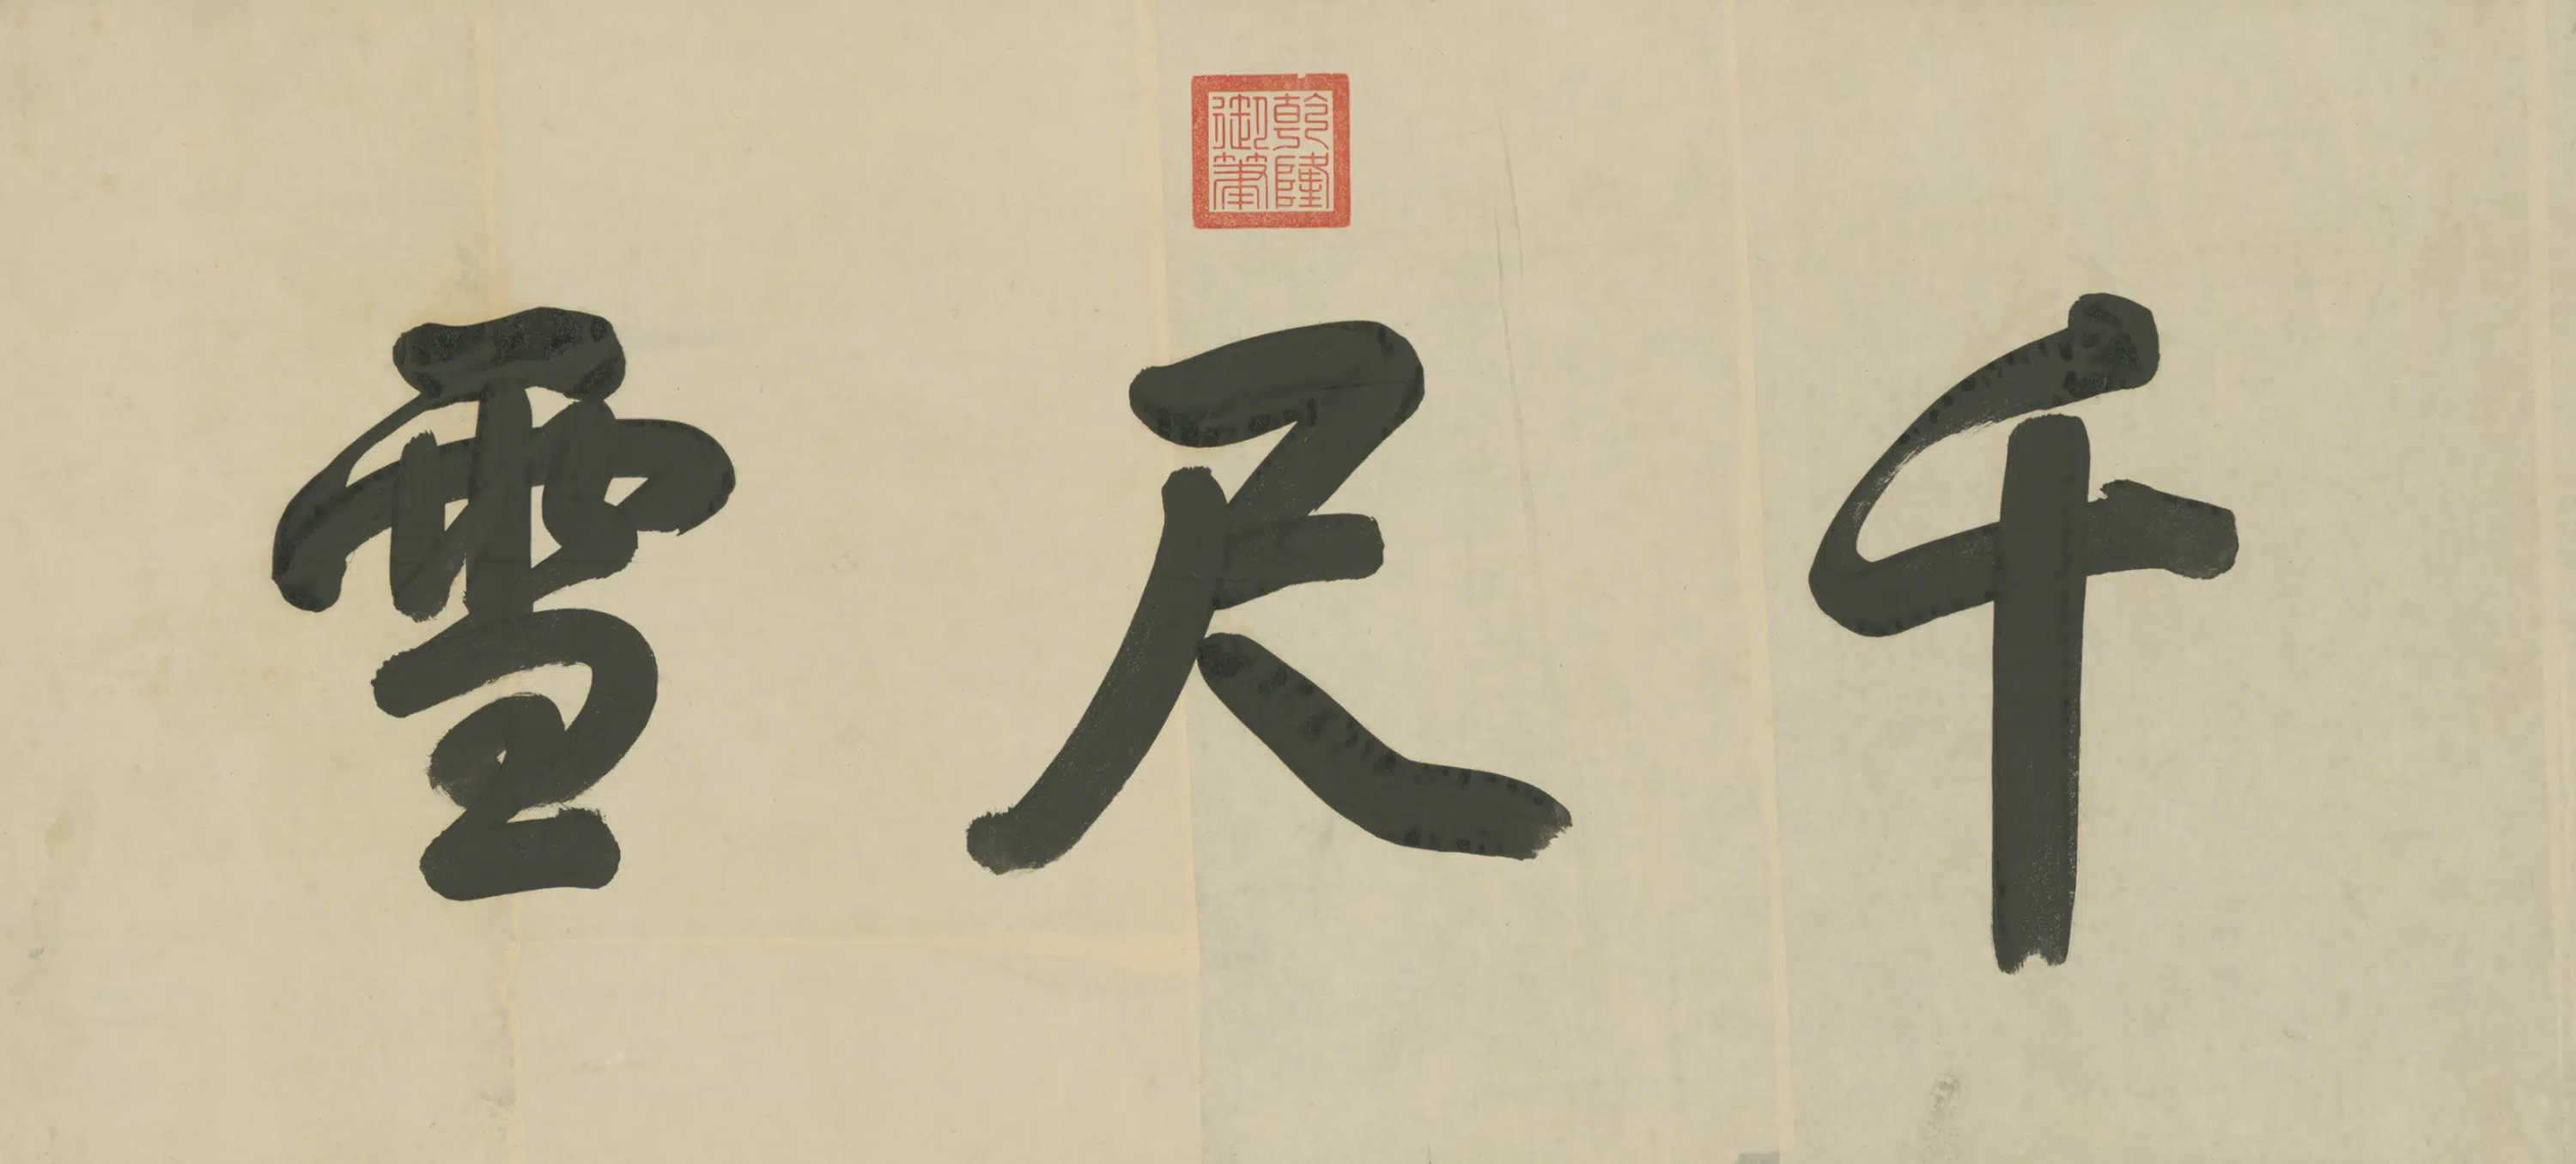 千尺雪
乾隆
御筆